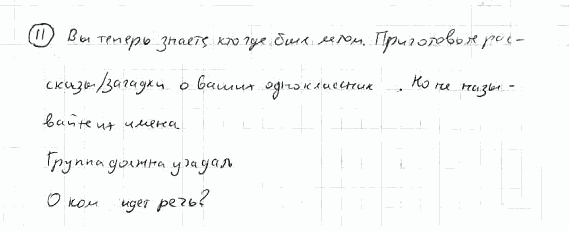 11 Вы теперь знаете кто где был летом. Приготовьте рас-
сказы/загадки о ваших одноклассник . Но не назы-
вайте их имена
Группа должна угадать
О ком идет речь?